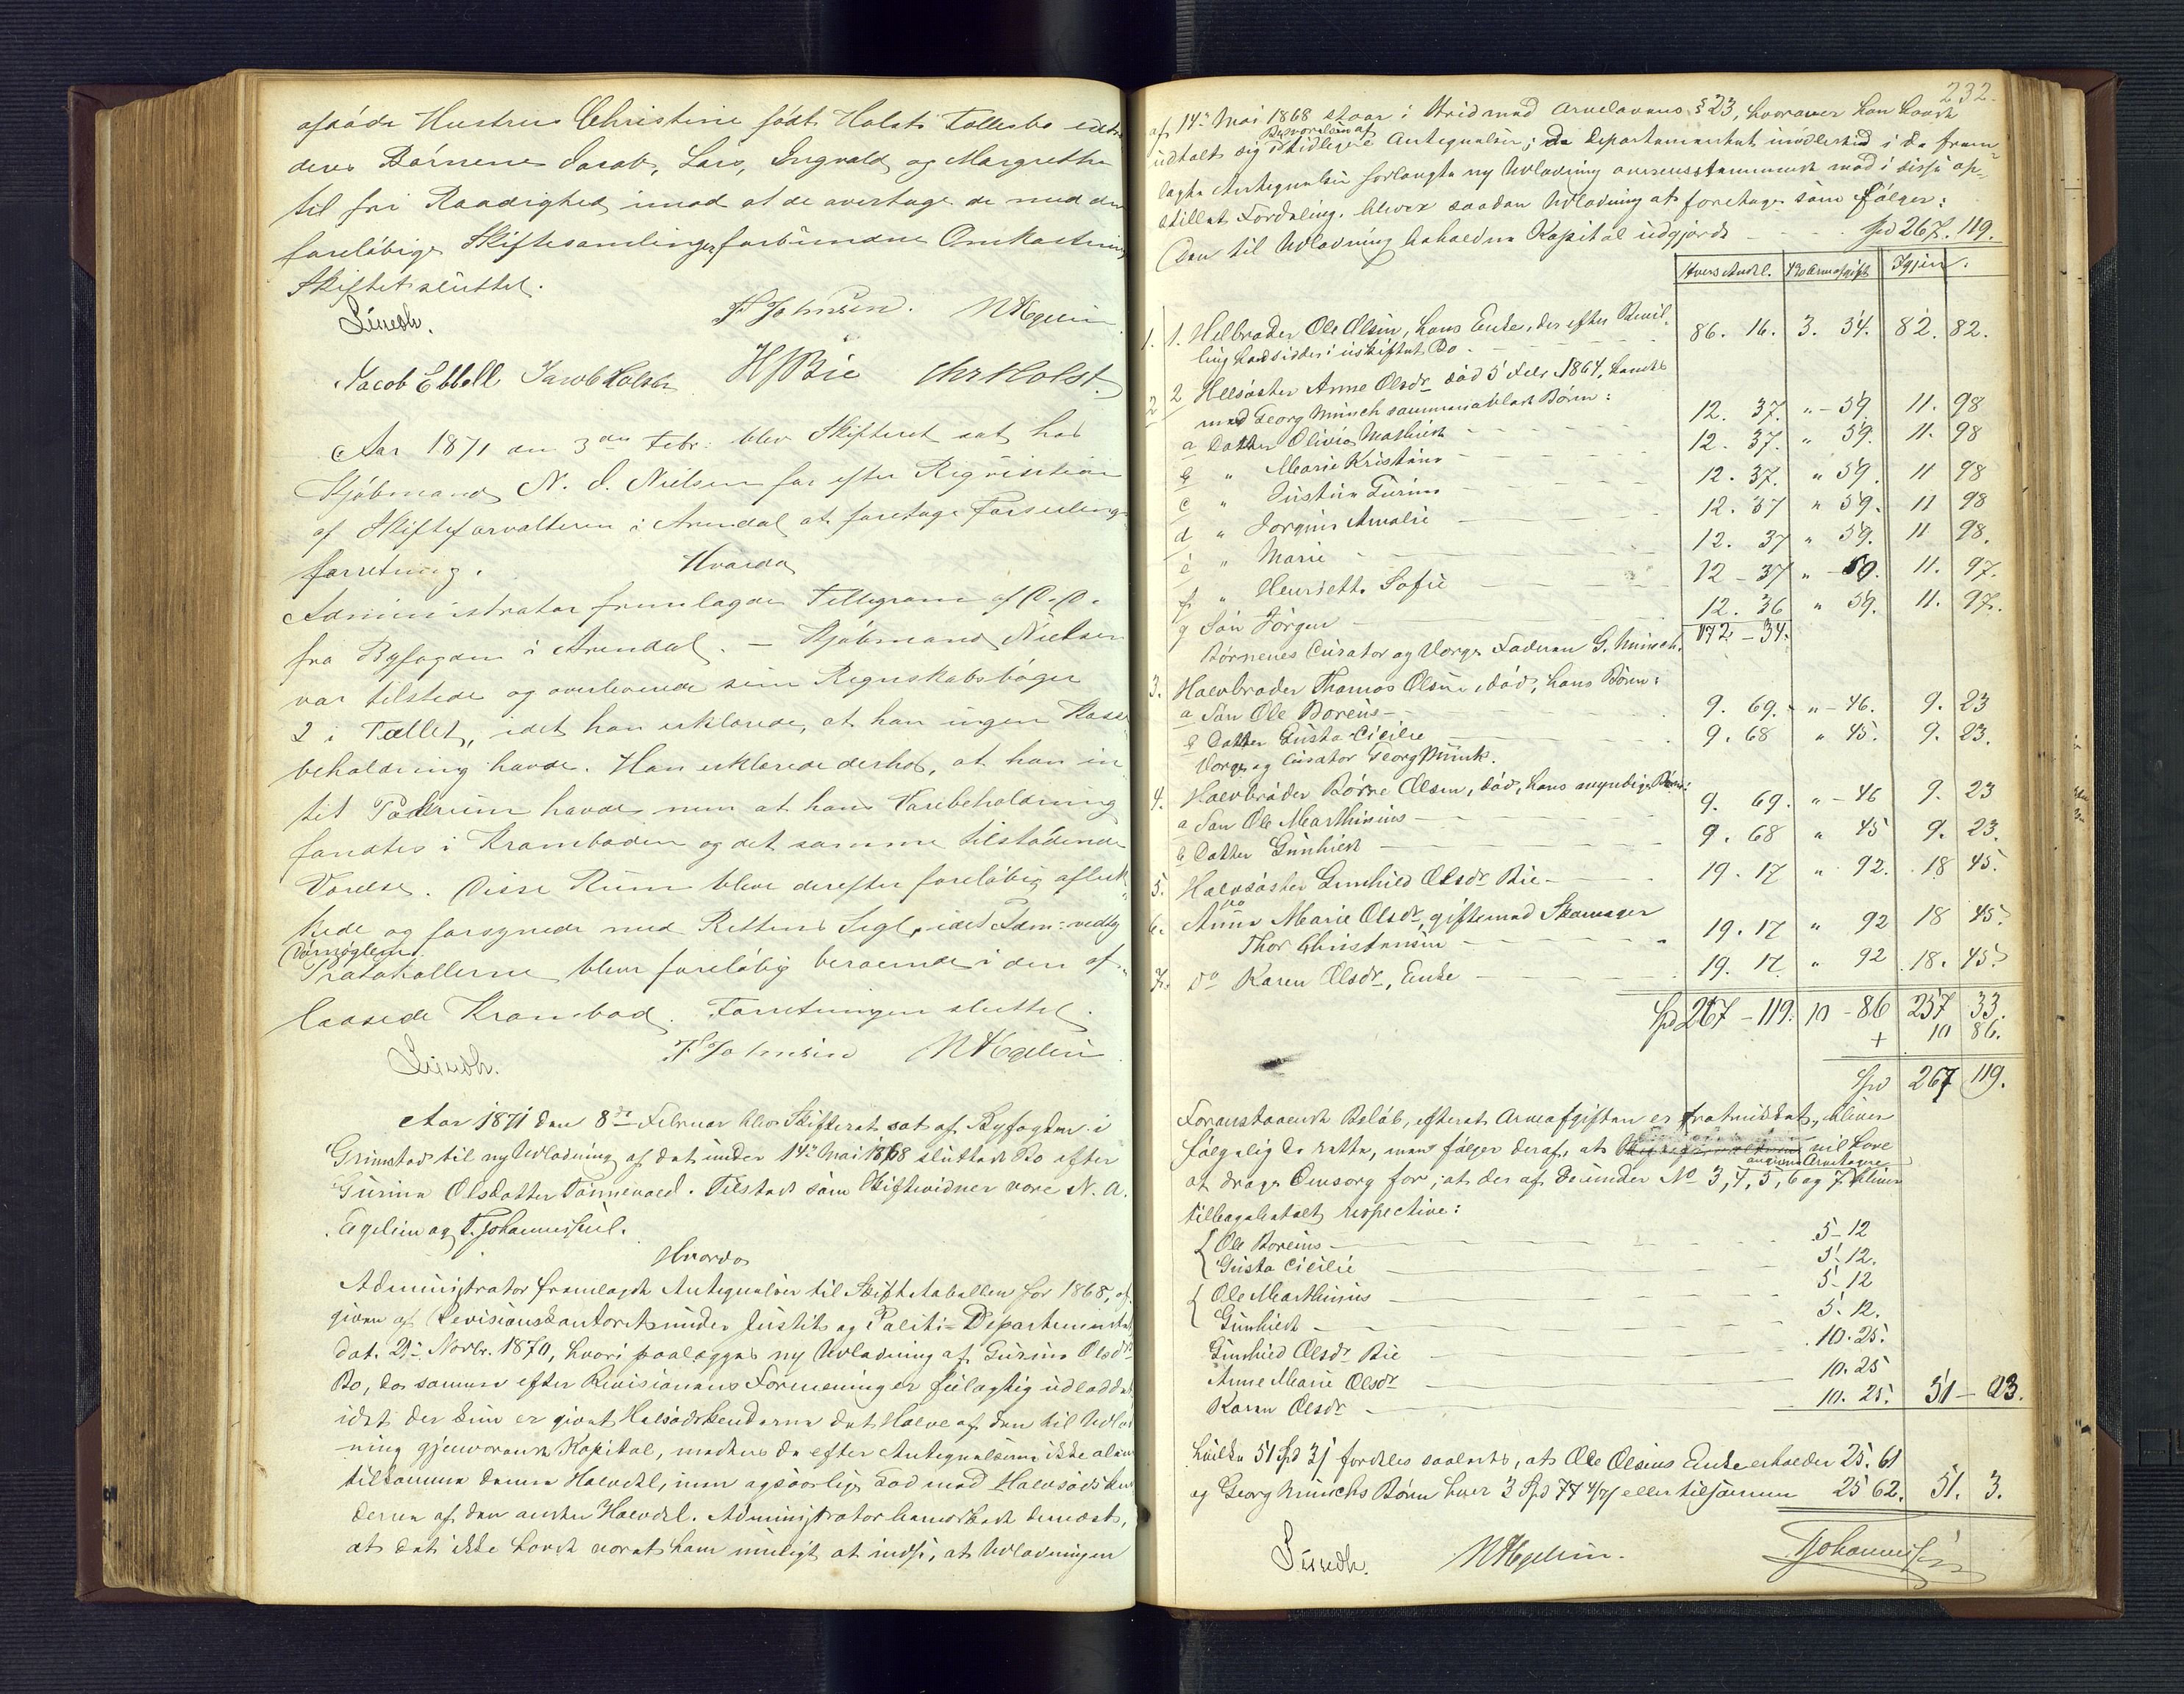 afdøde Hustru Christine født Holst Tellesbø
deres Børnene Jacob, Lars, Ingvald og Margrethe
til fri Raadighed imod at de overtage de med den
foreløbige Skiftesamlinger forbundne Omkostninger
Skiftet sluttet.
F Johnsen. NAEgelin
Jacob Ebbell Jacob Holst HJBie Chr Holst.
Aar 1871 den 3die Febr: blev Skifteret sat hos
Kjøbmand N. S. Nielsen for efter Reqvisition
af Skifteforvalteren i Arendal at foretage Forseelings
forretning.
Hvorda
Administrator fremlagde Tellegram af D.D.
fra Byfogden i Arendal. — Kjøbmand Nielsen
var tilstede og overleverede sine Regnskabsbøger
2 i Tallet, idet han erklærede, at han ingen Kasse
beholdning havde. Han erklærede derhos, at han in
tet Pakrum havde men at hans Varebeholdning
fandtes i Kramboden og det samme tilstødende
Værelse. Disse Rum bleve derefter foreløbig afluk
kede og forsynede med Rettens Segl, idet Adm: vedtog
Dørnøglerne.
Protokollerne bleve foreløbig beroende i den af
laasede Krambod. Forretningen sluttet.
F Johnsen NAEgelin
Aar 1871 den 8de Februar blev Skifteret sat af Byfogden i
Grimstad til ny Udlodning af det under 14de Mai 1868 sluttede Bo efter
Gurine Olsdatter Tønnevold. Tilstede som Skiftevidner vare N. A.
Egelin og T. Johannesen.
Hvorda
Administrator fremlagde Antegnelser til Skiftetabellen for 1868, af
given af Revisionskontoret under Justits og Politi-Departementet
dat. 21 Novbr. 1870, hvori paalægges ny Udlodning af Gurine Olsdtr
Bo, da samme efter Revisionens Formening er feilagtig udloddet
idet der kun er givet Helsødskenderne det Halve af den til Udlod
ning gjenværende Kapital, medens de efter Antegnelserne ikke alene
tilkomme denne Halvdel, men ogsaa lige Lod med Halvsødsken
derne af den anden Halvdel. Administrator bemærkede dernæst,
at det ikke havde været ham muligt at indse, at Udlodningen
232.
af 14de Mai 1868 staar i Strid med Arvelovens § 23, hvorover han havde
Besvarelsen af
udtalt sig i tidligere Antegnelser; da Departementet imidlertid i de frem
lagte Antegnelser forlangte ny Udlodning overensstemmende med i disse op-
stillet Fordeling, bliver saadan Udlodning at foretage som følger:
Den til Udlodning beholdne Kapital udgjorde — Spd 267. 119.
Hvers Andel. 4% Arveafgift Igjen.
1. 1. Helbroder Ole Olsen, hans Enke, der efter Bevil. 86. 16. 3. 54. 82. 82.
ling hensidder i uskiftet Bo
2 2 Helsøster Anne Olsdr død 5 Febr 1864, havde
med Georg Münch sammenavlede Børn:
a Datter Olivia Mathilde 12. 37. " 59 11. 98
b " Marie Kristine 12. 37. " 59. 11. 98
c " Justine Turine 12. 37. " 59. 11 98
d " Jørgine Amalie 12. 37 " 59. 11 98
e " Marie 12. 37 " 59. 11 98.
f " Henriette Sofie 12 - 37 " 59. 11. 97.
g Søn Jørgen 12. 36 " 59. 11. 97.
Børnenes Curator og Værge Faderen G. Münch. 172 - 34.
3. Halvbroder Thomas Olsen, død, hans Børn:
a Søn Ole Boreus 9. 69. " - 46. 9. 23
b Datter Gusta Cicilie 9. 68 " 45. 9. 23.
Værge og Curator Georg Münch.
4. Halvbroder Børre Olsen, død, hans myndige Børn:
a Søn Ole Marthinius 9. 69. " - 46 9. 23
b Datter Gunhild 9. 68 " 45 9. 23.
5. Halvsøster Gunhild Olsdr Bie 19. 17 " 92. 18 45.
6. do Anne Marie Olsdr, gift med Skomager
Thor Christensen 19. 17 " 92 18 45.
7. do Karen Olsdr, Enke 19. 17. " 92 18. 45.
Spd 267 - 119. 10 - 86 257 33.
+ 10 86.
Spd 267 119.
Foranstaaende Beløb, efterat Arveafgiften er fratrukket, bliver
følgelig de rette, men følger deraf, at vil have
angivne Arvetagere
at drage Omsorg for, at der af de under No 3, 4, 5, 6 og 7 bliver
tilbagebetalt respective:
Ole Boreus 5-12
Gusta Cicilie 5-12.
Ole Marthinius 5-12
Gunhild 5. 12.
Gunhild Olsdr Bie 10. 25.
Anne Marie Olsdr 10. 25
Karen Olsdr 10. 25. 51 - 03.
hvilke 51 Spd 3 s fordeles saaledes, at Ole Olsens Enke erholder 25. 61
og Georg Münchs Børn hver 3 Spd 77 4/7 s eller tilsammen 25 62. 51. 3.
NAEgelin. TJohannesen